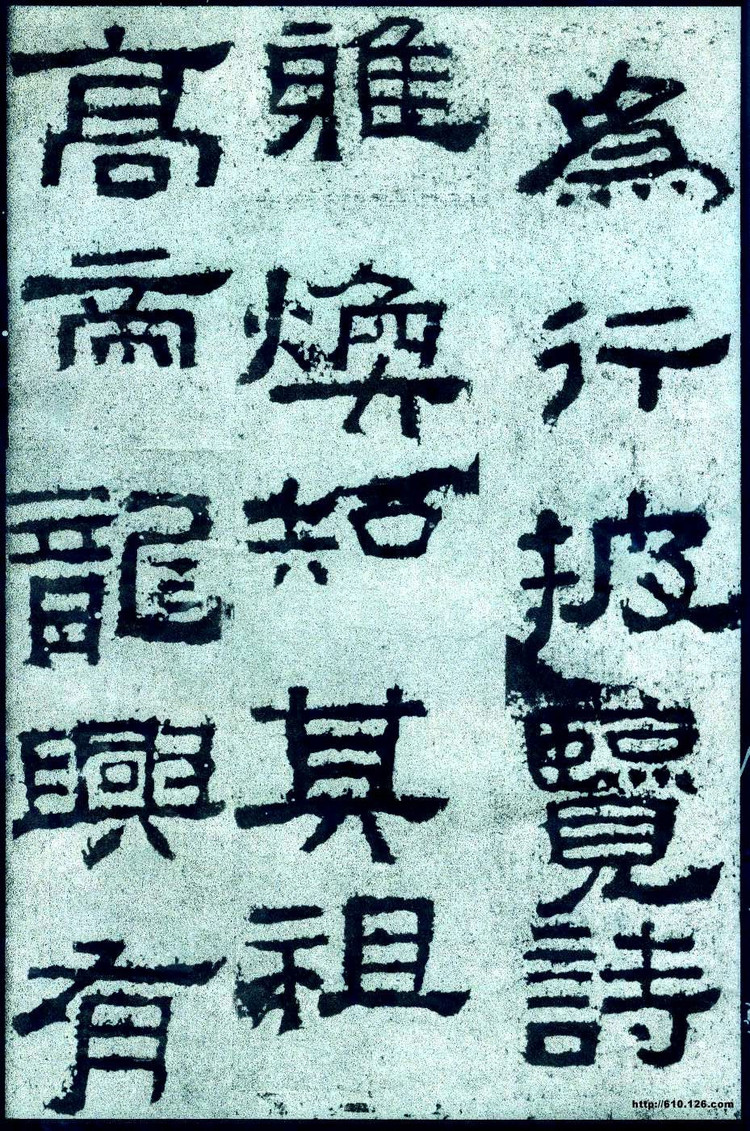 為行披覽詩
雅煥知其祖
高帝龍興有
http://610.126.com